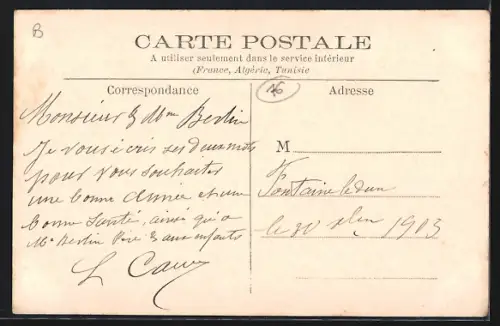 B
CARTE POSTALE
A utiliser seulement dans le service intérieur
(France, Algérie, Tunisie
Correspondance
Adresse
Monsieur & Mme Berlin
Je vous écris ses deux mots
pour vous souhaiter
une bonne année et une
bonne santé, ainsi qu'a
Mr Berlin Père & aux enfants
M
Fontaine le dun
le 30 1903